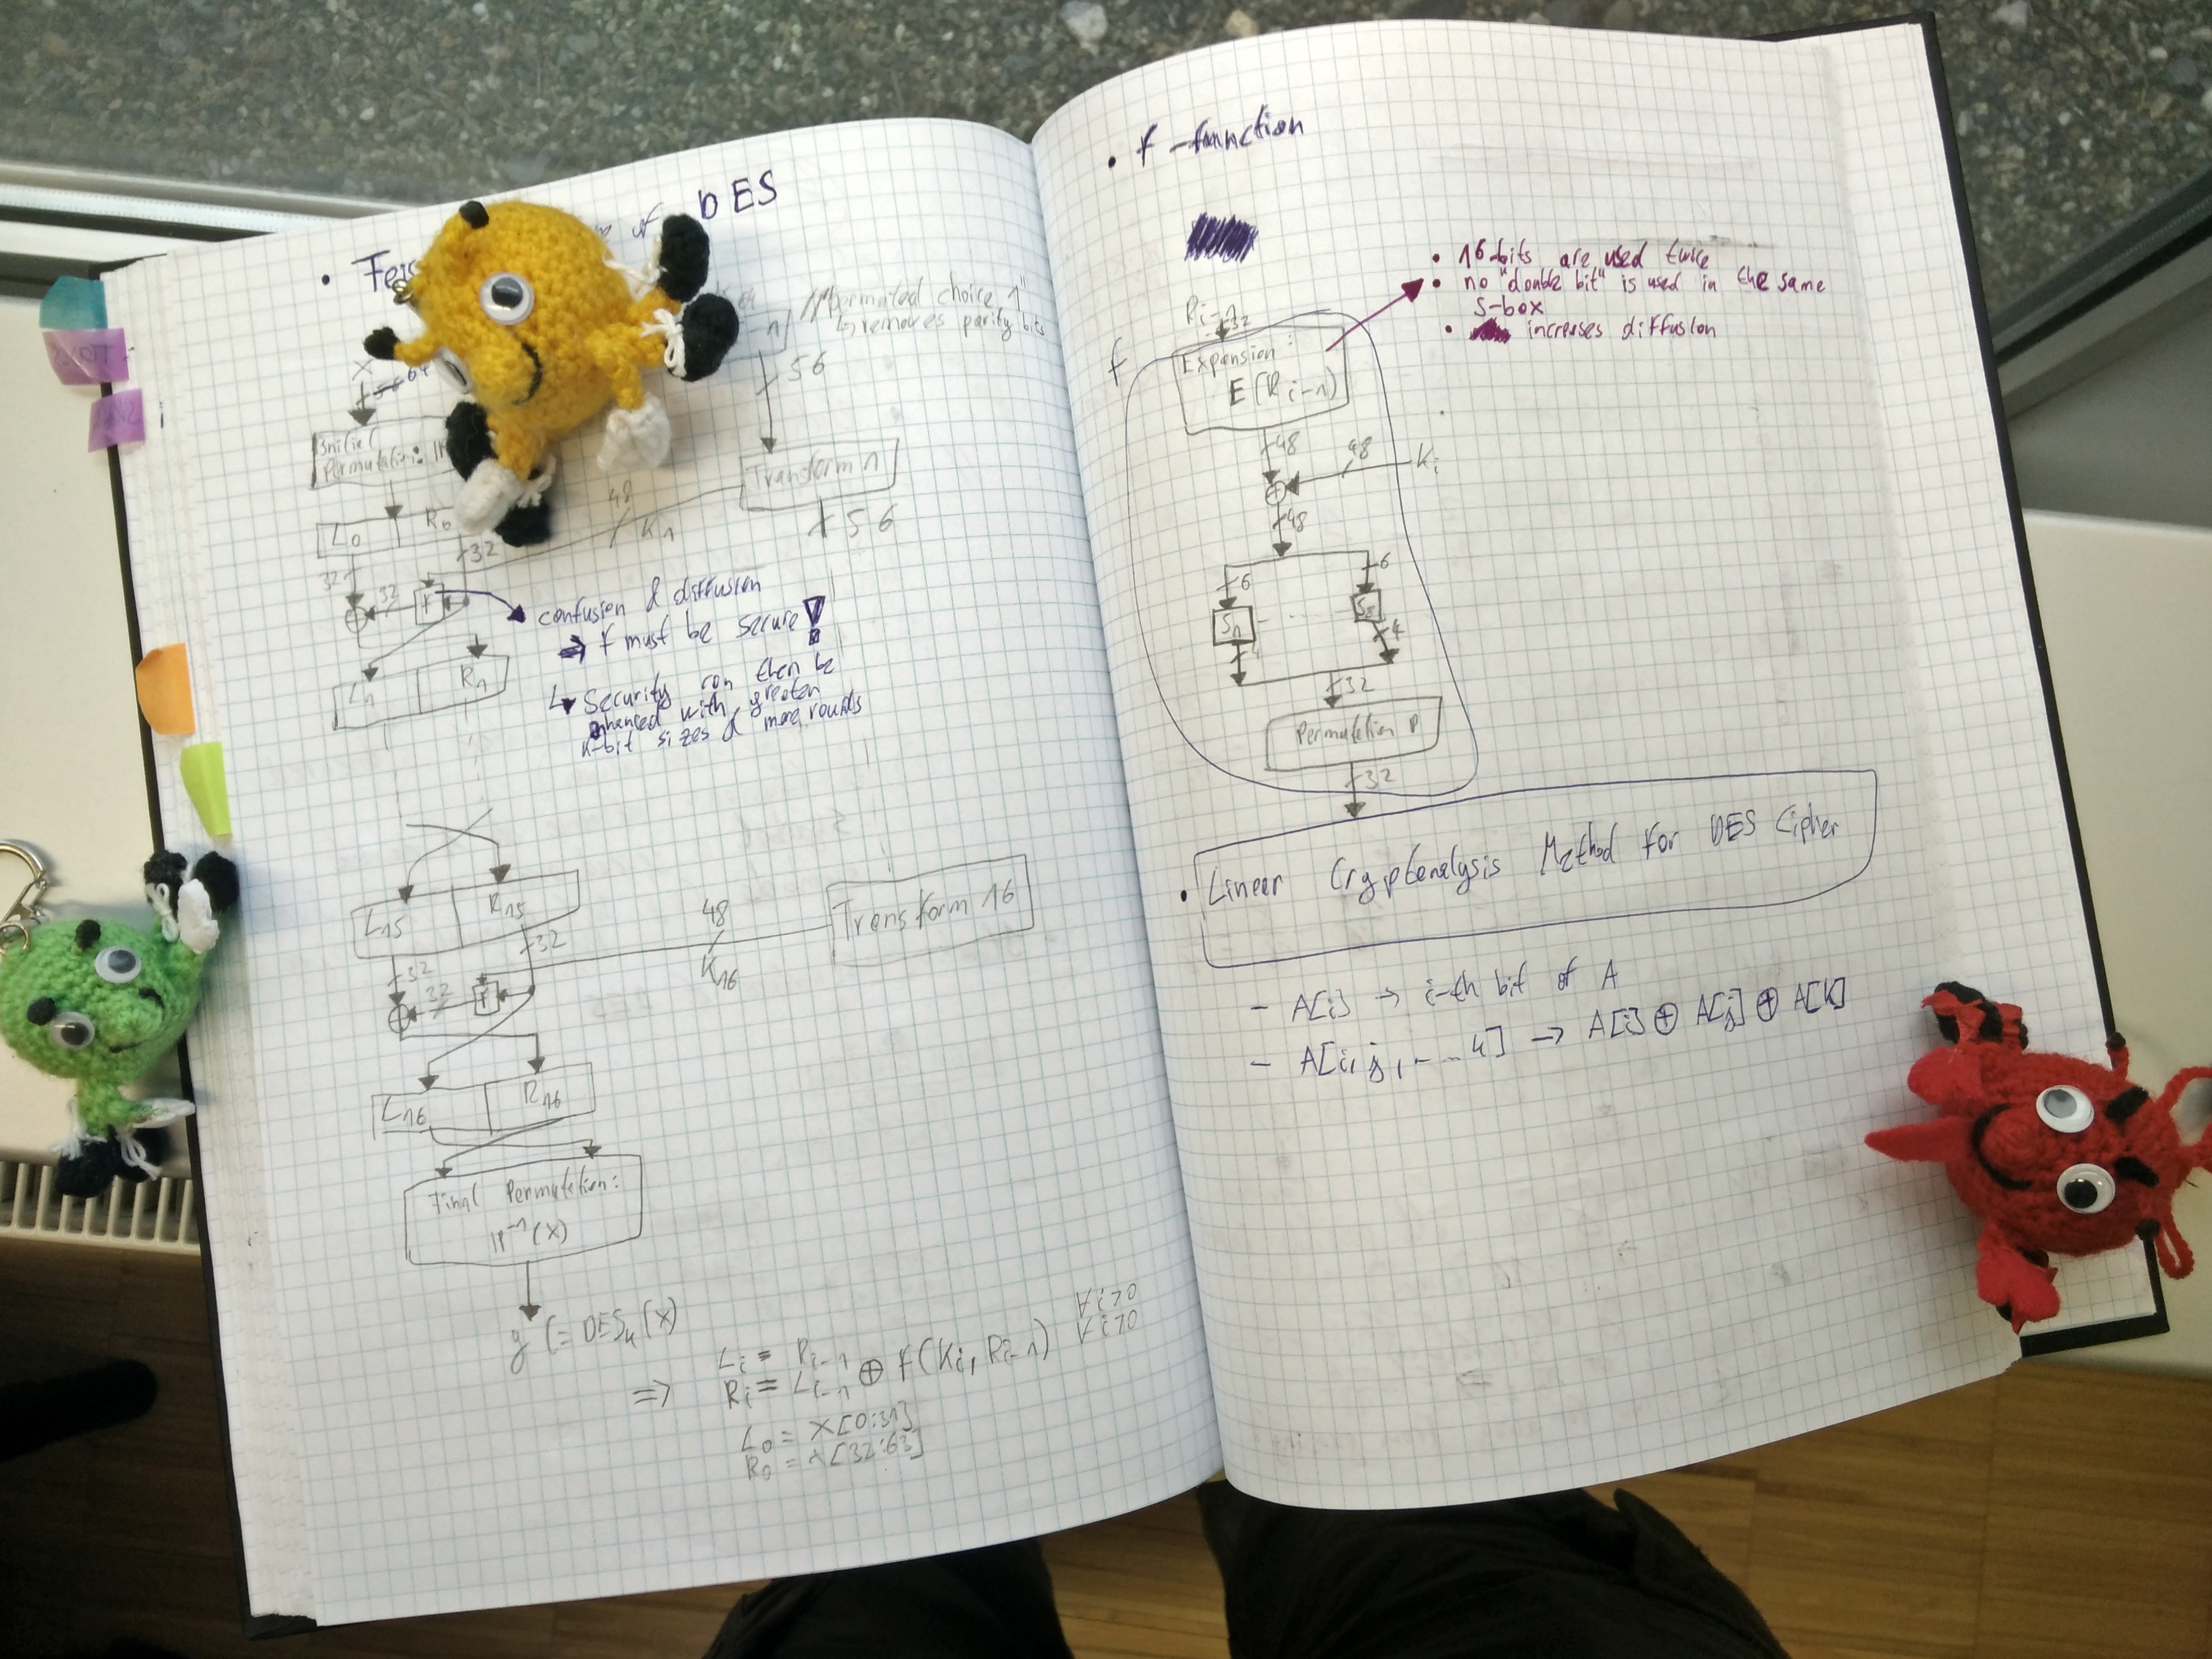 DES
• Feis
of
// "permuted choice 1"
↳ removes parity bits
X
64
56
Initial
Permutation: IP
Transform 1
48
K1
56
L0
R0
32
32
32
f
confusion & diffusion
⇒ f must be secure!
↳ Security can then be
enhanced with greater
k-bit sizes & more rounds
L1
R1
L15
R15
48
K16
Transform 16
32
32
32
f
L16
R16
Final Permutation:
IP⁻¹(X)
y (= DESk(X)
Li = Ri-1 ∀i>0
⇒ Ri = Li-1 ⊕ f(Ki, Ri-1) ∀i>0
L0 = X[0:31]
R0 = X[32:63]
• f-function
• 16-bits are used twice
• no "double bit" is used in the same
S-box
• increases diffusion
Ri-1
32
f
Expansion:
E(Ri-1)
48
48
Ki
48
6
6
S1
S8
4
4
32
Permutation P
32
• Linear Cryptanalysis Method for DES Cipher
- A[i] → i-th bit of A
- A[i,j,...k] → A[i] ⊕ A[j] ⊕ A[k]